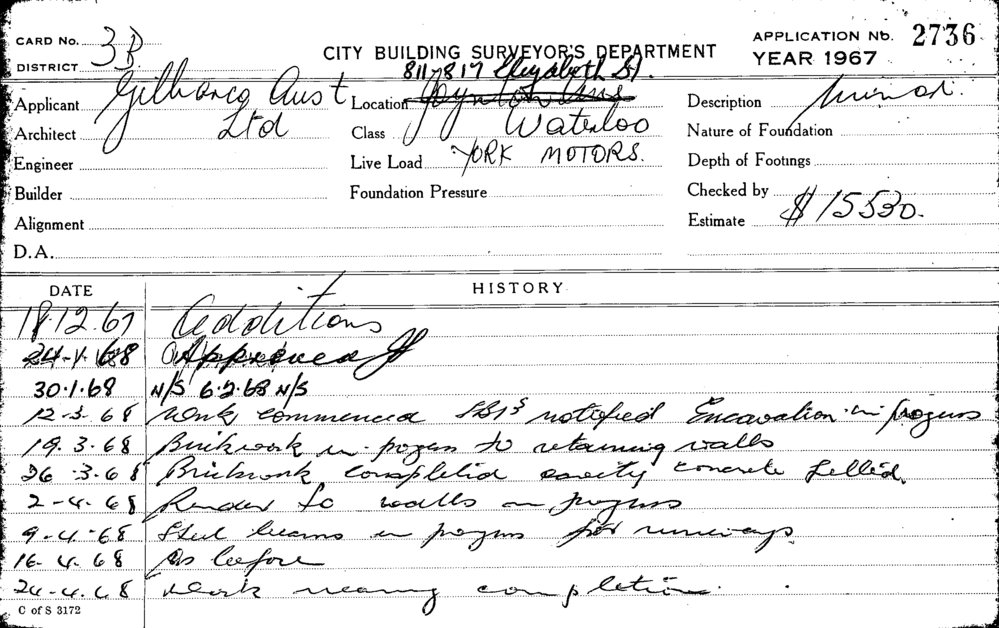 CARD No. 3B
DISTRICT
CITY BUILDING SURVEYOR'S DEPARTMENT
APPLICATION No. 2736
YEAR 1967
811-817 Elizabeth St.
Applicant Gilbarco Aust
Location Joynton Ave
Description
Architect Ltd
Class Waterloo
Nature of Foundation
Engineer
Live Load YORK MOTORS.
Depth of Footings
Builder
Foundation Pressure
Checked by
Alignment
Estimate $15530.
D.A.
DATE HISTORY
18.12.67 Additions
24-1-68 Approved
30.1.68 N/S 6.2.68 N/S
12-3-68 Work commenced notified Excavation in progress
19.3.68 Brickwork in progress to retaining walls
26.3.68 Brickwork completed cavity concrete filled.
2-4-68 Render to walls in progress
9-4-68 Steel beams in progress for runways.
16.4.68 As before
24-4-68 Work nearing completion.
C of S 3172